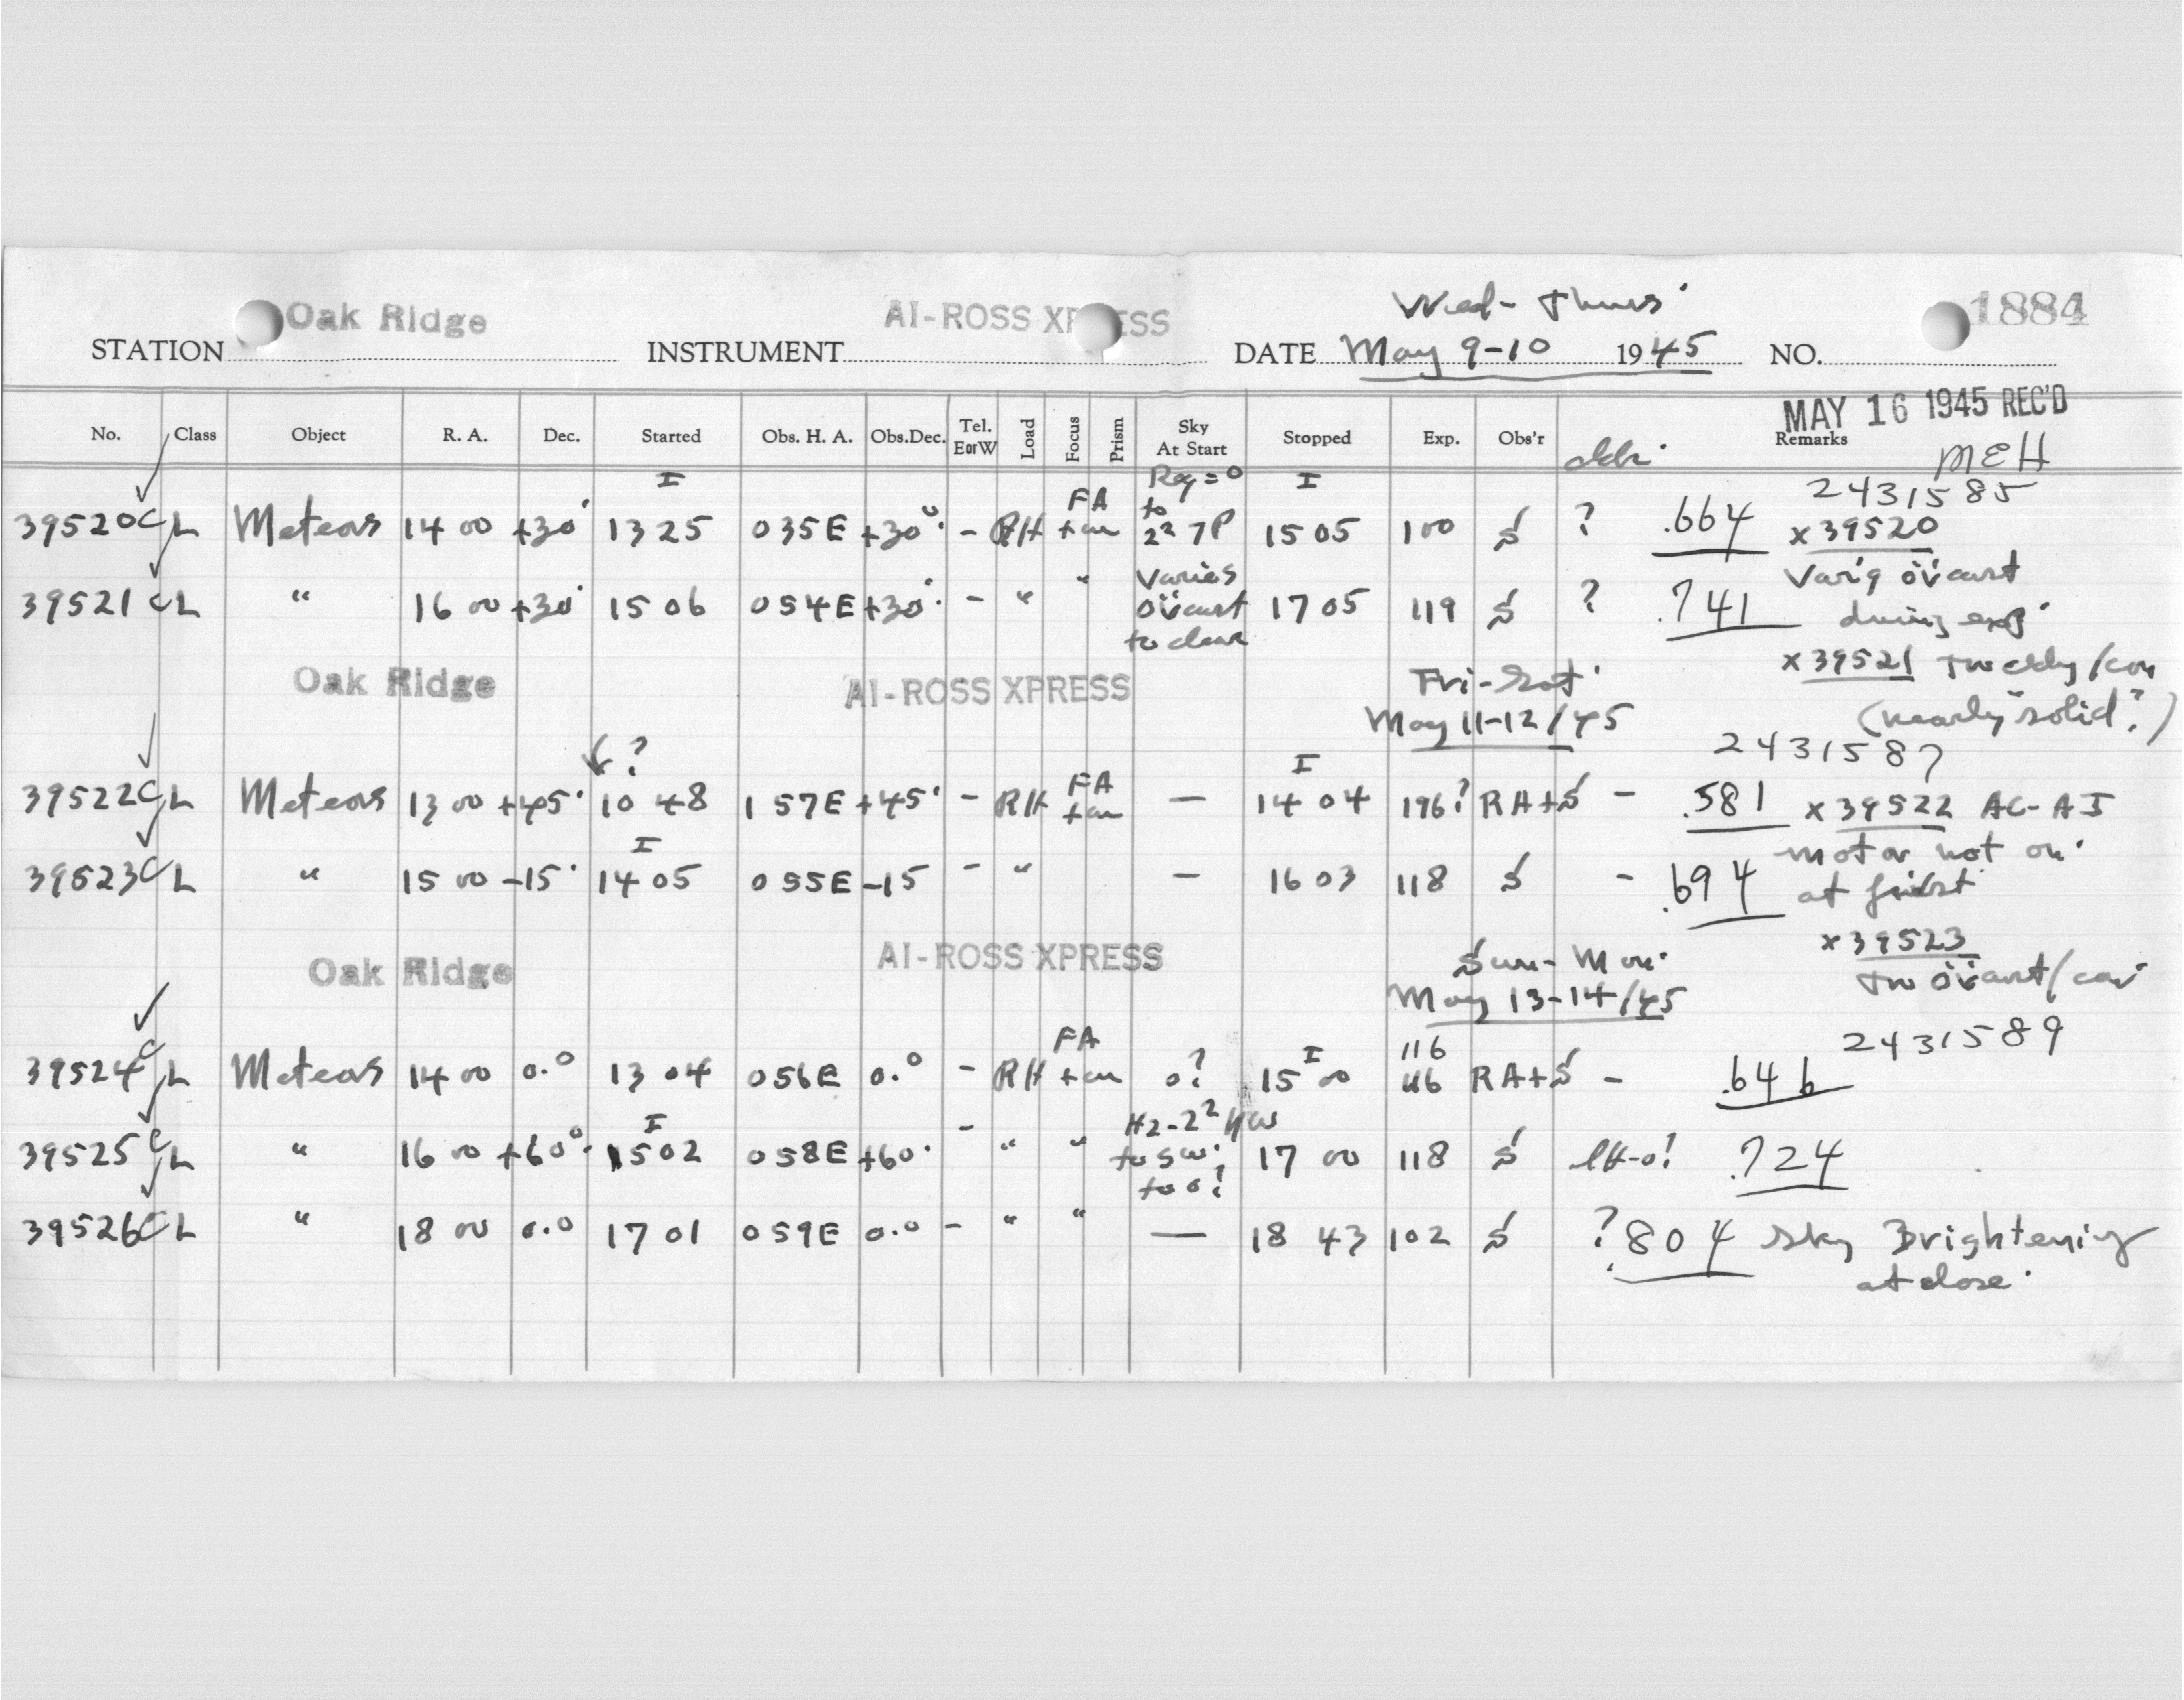 Wed - Thurs.
STATION Oak Ridge INSTRUMENT AI-ROSS XPRESS DATE May 9-10 1945 NO. 1884
MAY 16 1945 REC'D
No. Class Object R. A. Dec. Started Obs. H. A. Obs.Dec. Tel. EorW Load Focus Prism Sky At Start Stopped Exp. Obs'r Remarks
MEH
I Rg=0 I 2431585
39520 C L Meteors 14 00 +30° 13 25 0 35E +30° - RH FA to 15 05 100 S ? .664 x 39520
Var'g öv'cast
39521 C L " 16 00 +30° 15 06 0 54E +30° - " " Varies öv'cast to clear 17 05 119 S ? .741 during exp.
x 39521
(nearly solid?)
Oak Ridge AI-ROSS XPRESS Fri-Sat.
May 11-12/45
2431587
39522 C L Meteors 13 00 +45° ? 10 48 1 57E +45° - RH FA — I 14 04 196? RA+S - .581 x 39522 AC-AI
motor not on.
39523 C L " 15 00 -15° I 14 05 0 55E -15 - " — 16 03 118 S - .694 at first
x 39523
Oak Ridge AI-ROSS XPRESS Sun-Mon.
May 13-14/45
2431589
39524 C L Meteors 14 00 0.° 13 04 0 56E 0.° - RH FA 0? I 15 00 116 RA+S - .646
39525 C L " 16 00 +60° I 15 02 0 58E +60° - " " to SW. to 0? 17 00 118 S .724
39526 C L " 18 00 0.° 17 01 0 59E 0.° - " " — 18 43 102 S ? .804 Sky Brightening
at close.